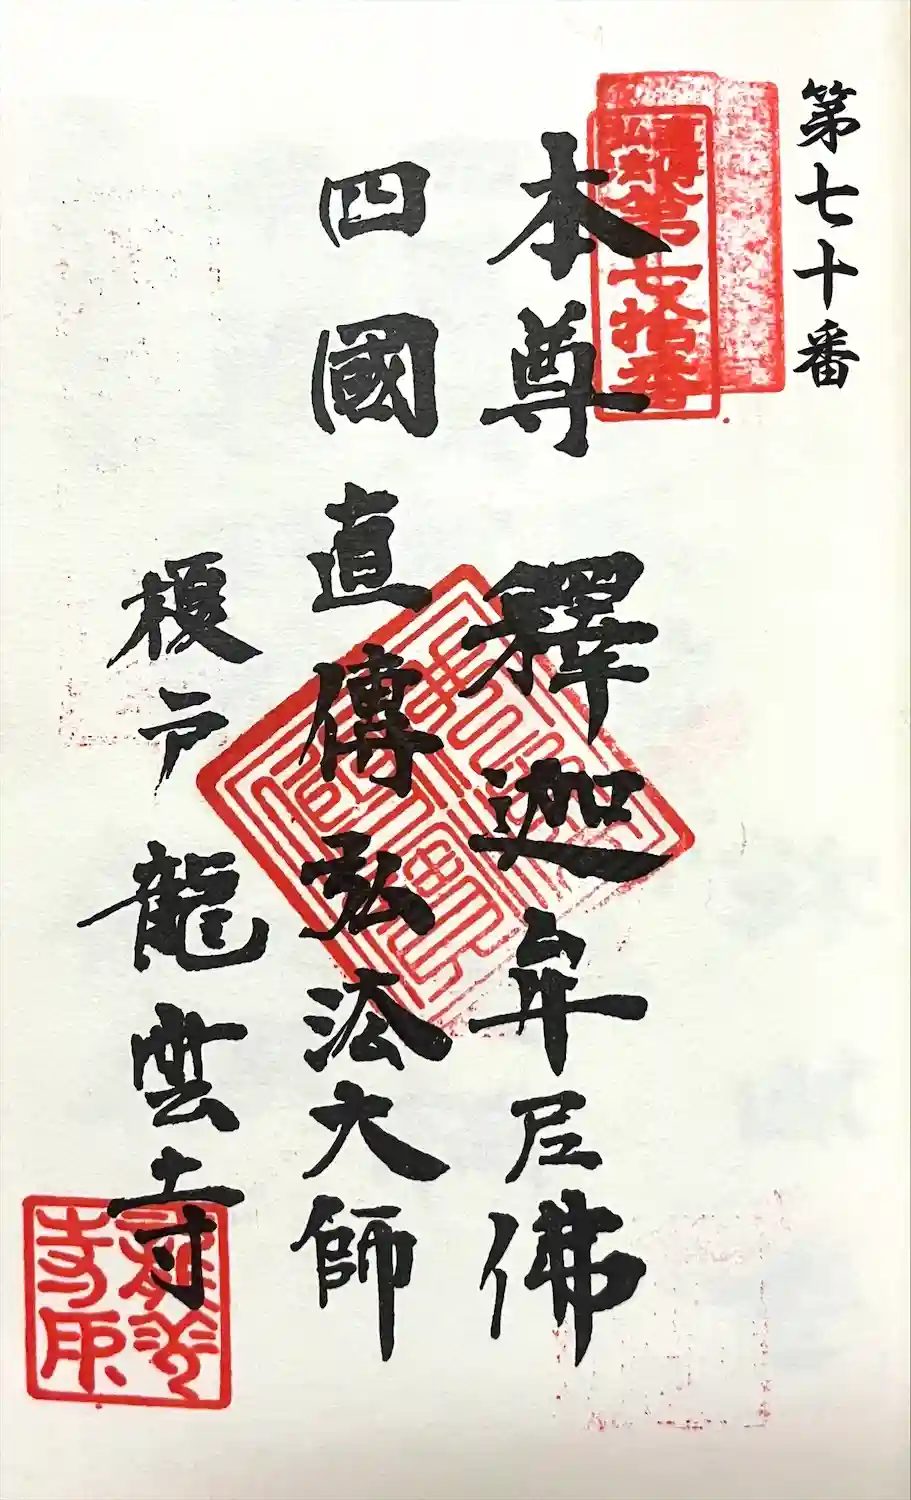 第七十番
本尊 釋迦牟尼佛
四國直傳弘法大師
榎戸 龍雲寺
弘法
第七拾番
龍雲
寺印